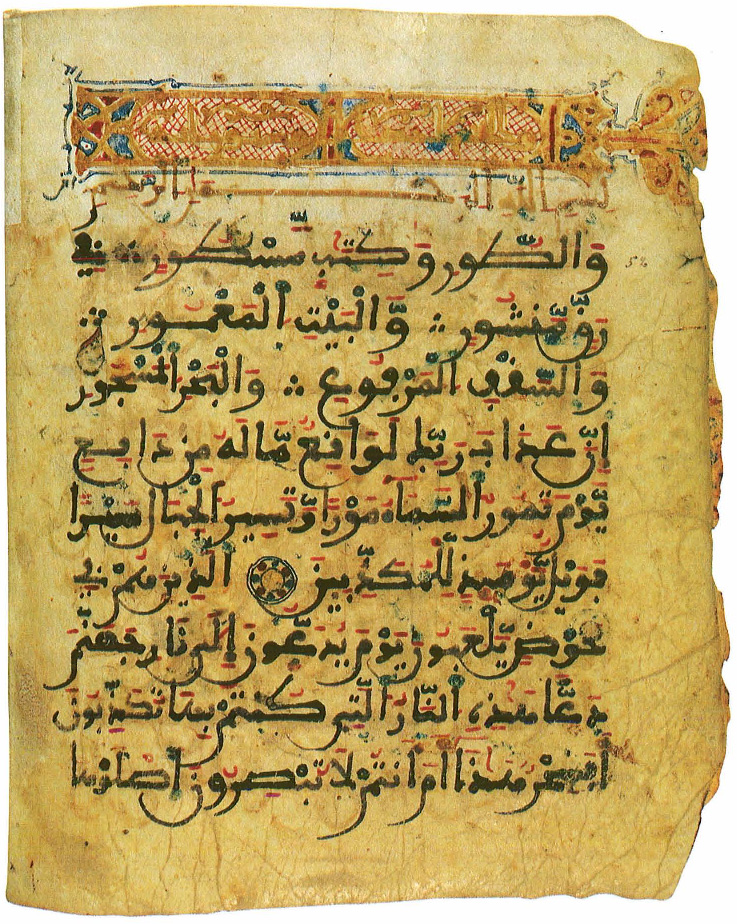 بسم الله الرحمن الرحيم
وَالطُّورِ وَكِتَٰبٍ مَّسْطُورٍ فِي
رَقٍّ مَّنشُورٍ وَّالْبَيْتِ الْمَعْمُورِ
وَالسَّقْفِ الْمَرْفُوعِ وَالْبَحْرِ الْمَسْجُورِ
إِنَّ عَذَابَ رَبِّكَ لَوَاقِعٌ مَّا لَهُ مِن دَافِعٍ
يَّوْمَ تَمُورُ السَّمَاءُ مَوْرًا وَّتَسِيرُ الْجِبَالُ سَيْرًا
فَوَيْلٌ يَّوْمَئِذٍ لِّلْمُكَذِّبِينَ الَّذِينَ هُمْ فِي
خَوْضٍ يَّلْعَبُونَ يَوْمَ يُدَعُّونَ إِلَىٰ نَارِ جَهَنَّمَ
دَعًّا هَٰذِهِ النَّارُ الَّتِي كُنتُم بِهَا تُكَذِّبُونَ
أَفَسِحْرٌ هَٰذَا أَمْ أَنتُمْ لَا تُبْصِرُونَ اصْلَوْهَا